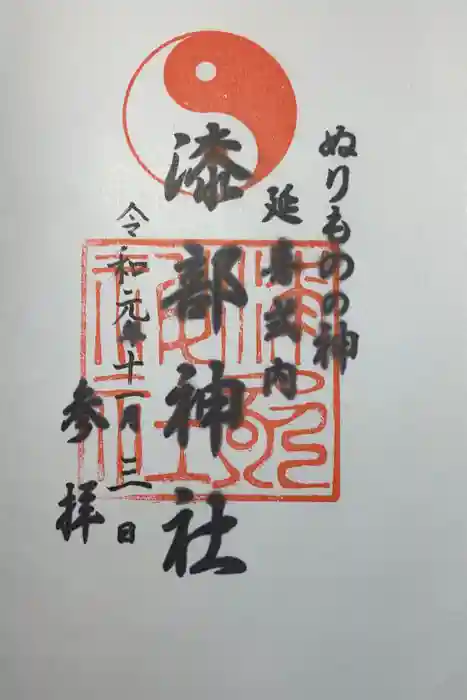 ぬりものの神
延喜式内
漆部神社
令和元年十一月三日
参拝